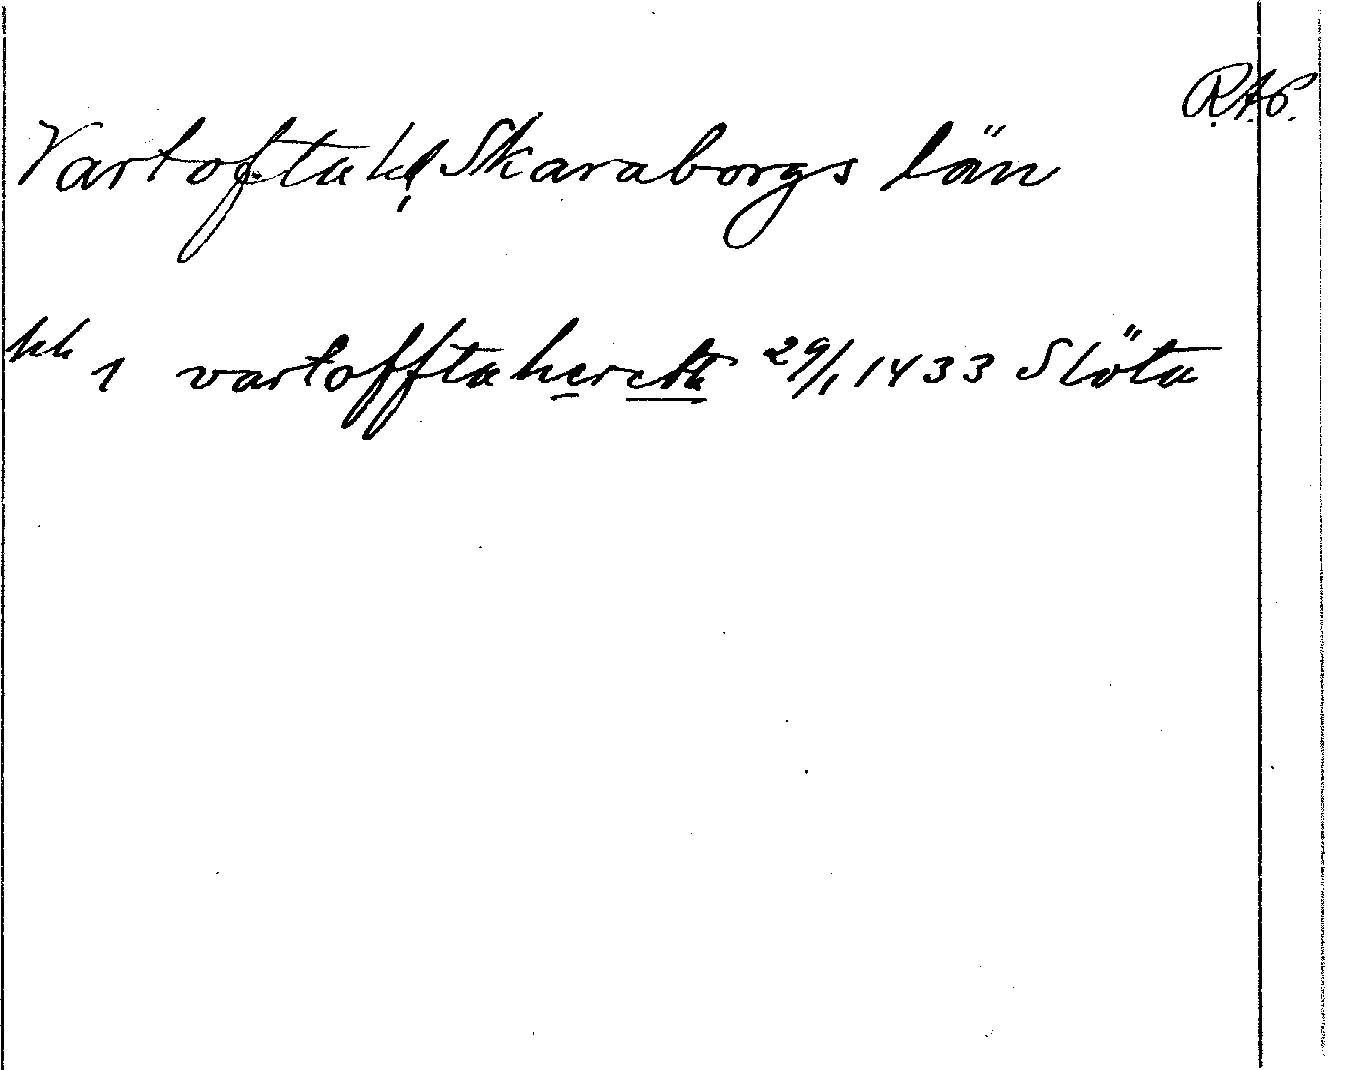 R.A.P.
Vartofta hd, Skaraborgs län
hh 1 vartoffta hereth 29/1 1433 Slöta